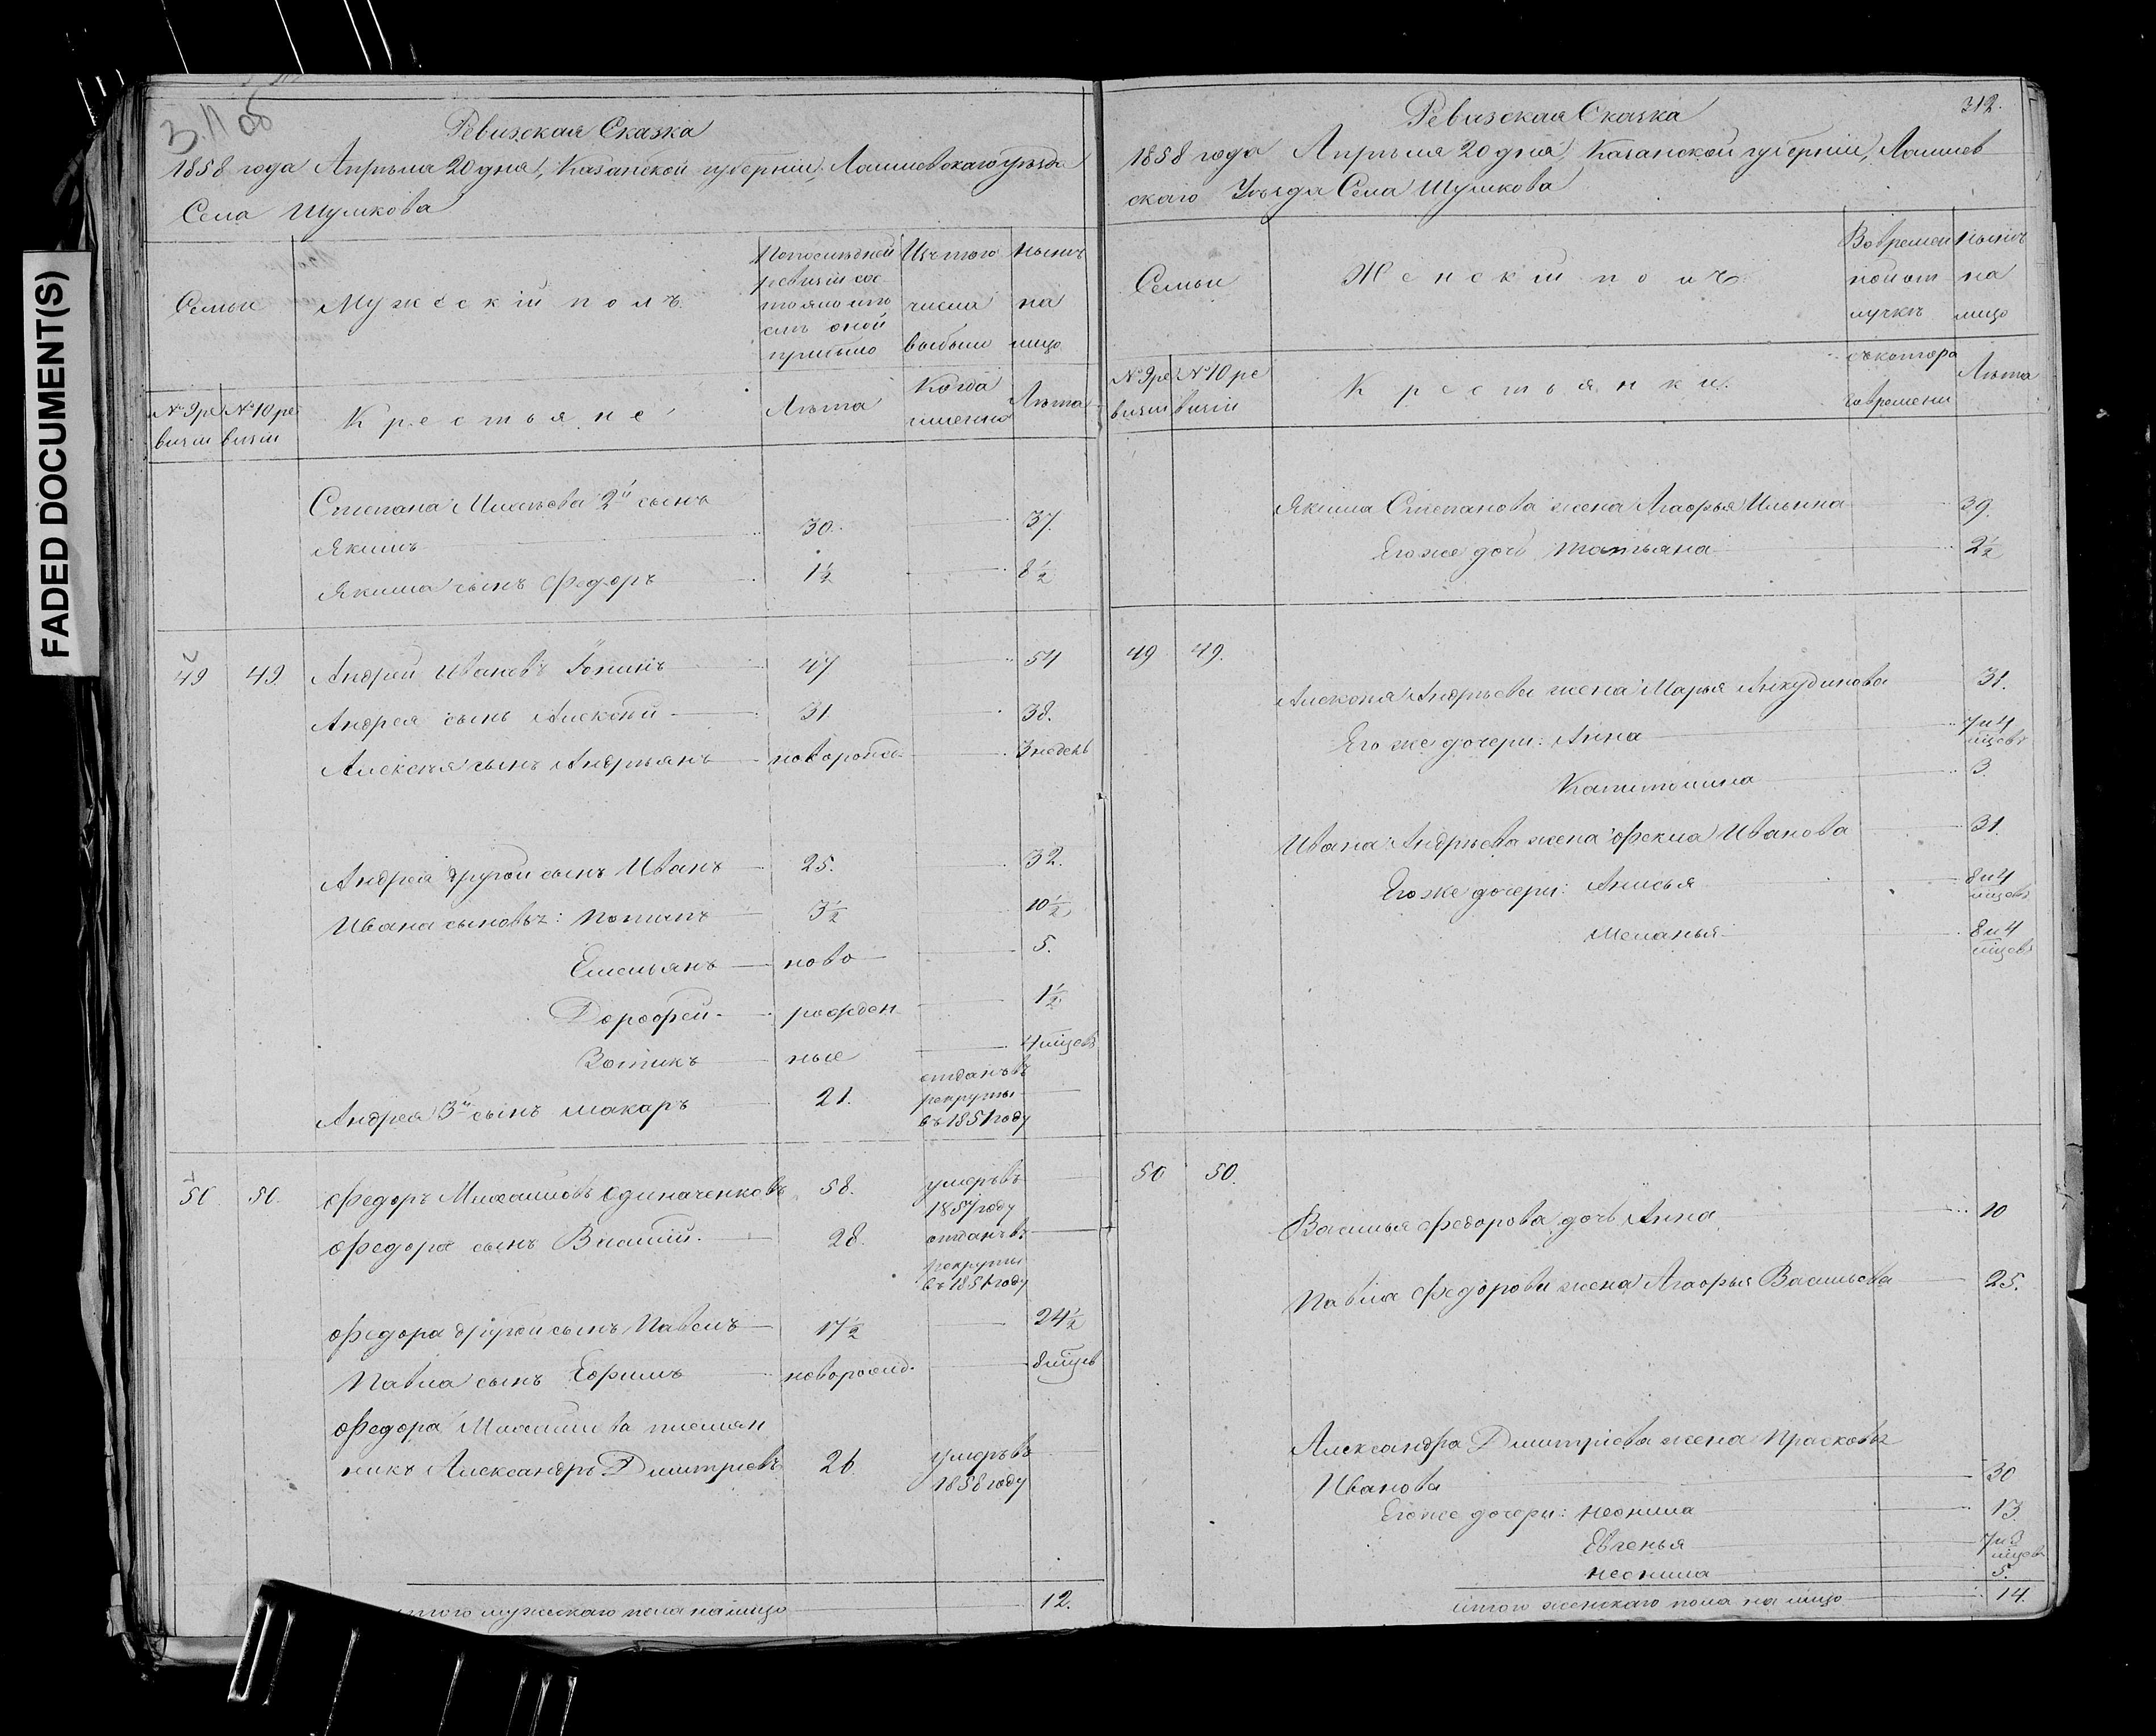 FADED DOCUMENT(S)
Ревизская Сказка
1858 года Апрѣля 20 дня, Казанской губерніи, Лаишевскаго уѣзда
Села Шумкова
Семьи
Мужескій полъ.
По послѣдней ревизіи состояло и послѣ оной прибыло
Изъ того числа выбыли
Нынѣ на лицо
№ 9 ревизіи
№ 10 ревизіи
Крестьяне
Лѣта
Когда именно
Лѣта
Степана Михѣева 2й сынъ
Якимъ 30. 37.
Якима сынъ Федоръ 1½ 8½
49 49. Андрей Ивановъ 47 54
Андрея сынъ Алексѣй 31. 38.
Алексѣя сынъ Андрьянъ новорожд. 3 недель
Андрея другой сынъ Иванъ 25. 32.
Ивана сыновья: Потапъ 3½ 10½
Емельянъ ново 5.
Дорофей рожден 1½
Зотикъ ные 4 мцевъ
Андрея 3й сынъ Макаръ 21. отданъ въ рекруты въ 1851 году
50. 50. Федоръ Михаиловъ Одиначенковъ 58. умеръ въ 1857 году
Федора сынъ Василій 28. отданъ въ рекруты въ 1851 году
Федора другой сынъ Павелъ 17½ 24½
Павла сынъ Ефимъ новорожд. 8 мцевъ
Федора Михаилова племян
никъ Александръ Дмитріевъ 26. умеръ въ 1858 году
Итого мужескаго пола на лицо 12.
312.
Ревизская Сказка
1858 года Апрѣля 20 дня, Казанской губерніи, Лаишев
скаго Уѣзда Села Шумкова
Семьи
Женскій полъ.
Во временной отлучкѣ
Нынѣ на лицо
№ 9 ревизіи
№ 10 ревизіи
Крестьянки.
съ котора времени
Лѣта
Якима Степанова жена Агафья Ильина 39.
Его же дочь Татьяна 2½
49 49.
Алексѣя Андрѣева жена Марья Анкудинова 31.
Его же дочери: Анна 7 и 4 мцевъ
Капитолина 3.
Ивана Андрѣева жена Фекла Иванова 31.
Его же дочери: Анисья 8 и 4 мцевъ
Меланья 8 и 4 мцевъ
50 50.
Василья Федорова дочь Анна 10
Павла Федорова жена Агафья Васильева 25.
Александра Дмитріева жена Прасковья
Иванова 30
Его же дочери: Неонила 13.
Евгенья 7 и 3 мцевъ
Неонила 5.
Итого женскаго пола на лицо 14.